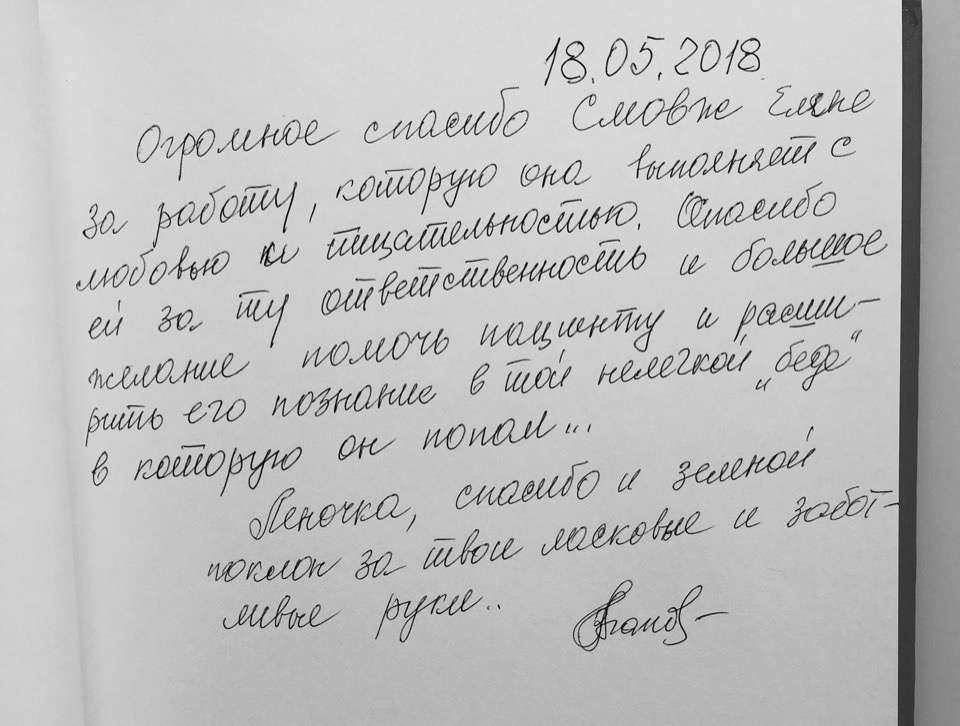 18.05.2018
Огромное спасибо Смовж Елене
за работу, которую она выполняет с
любовью и тщательностью. Спасибо
ей за ту ответственность и большое
желание помочь пациенту и расши-
рить его познание в той нелегкой „беде“
в которую он попал...
Леночка, спасибо и земной
поклон за твои ласковые и забот-
ливые руки..